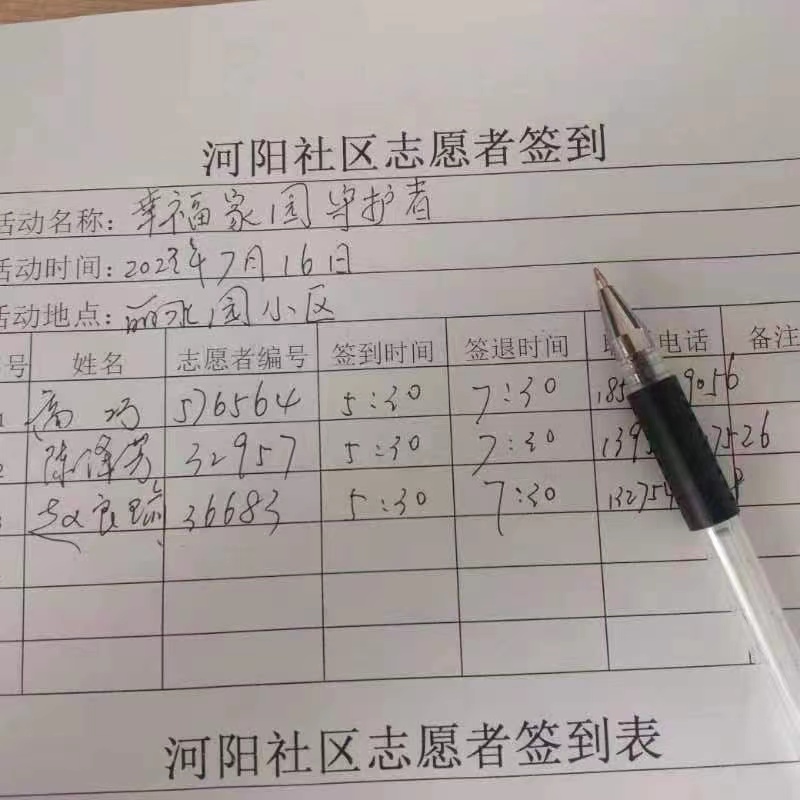 河阳社区志愿者签到
活动名称：幸福家园守护者
活动时间：2023年7月16日
活动地点：丽水园小区
号 姓名 志愿者编号 签到时间 签退时间 电话 备注
高巧 576564 5:30 7:30 185 9056
2 陈 芳 32957 5:30 7:30 139 7526
赵良 36683 5:30 7:30 13275
河阳社区志愿者签到表